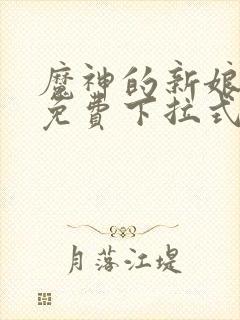 魔神的新娘
免費下拉式
月落江堤